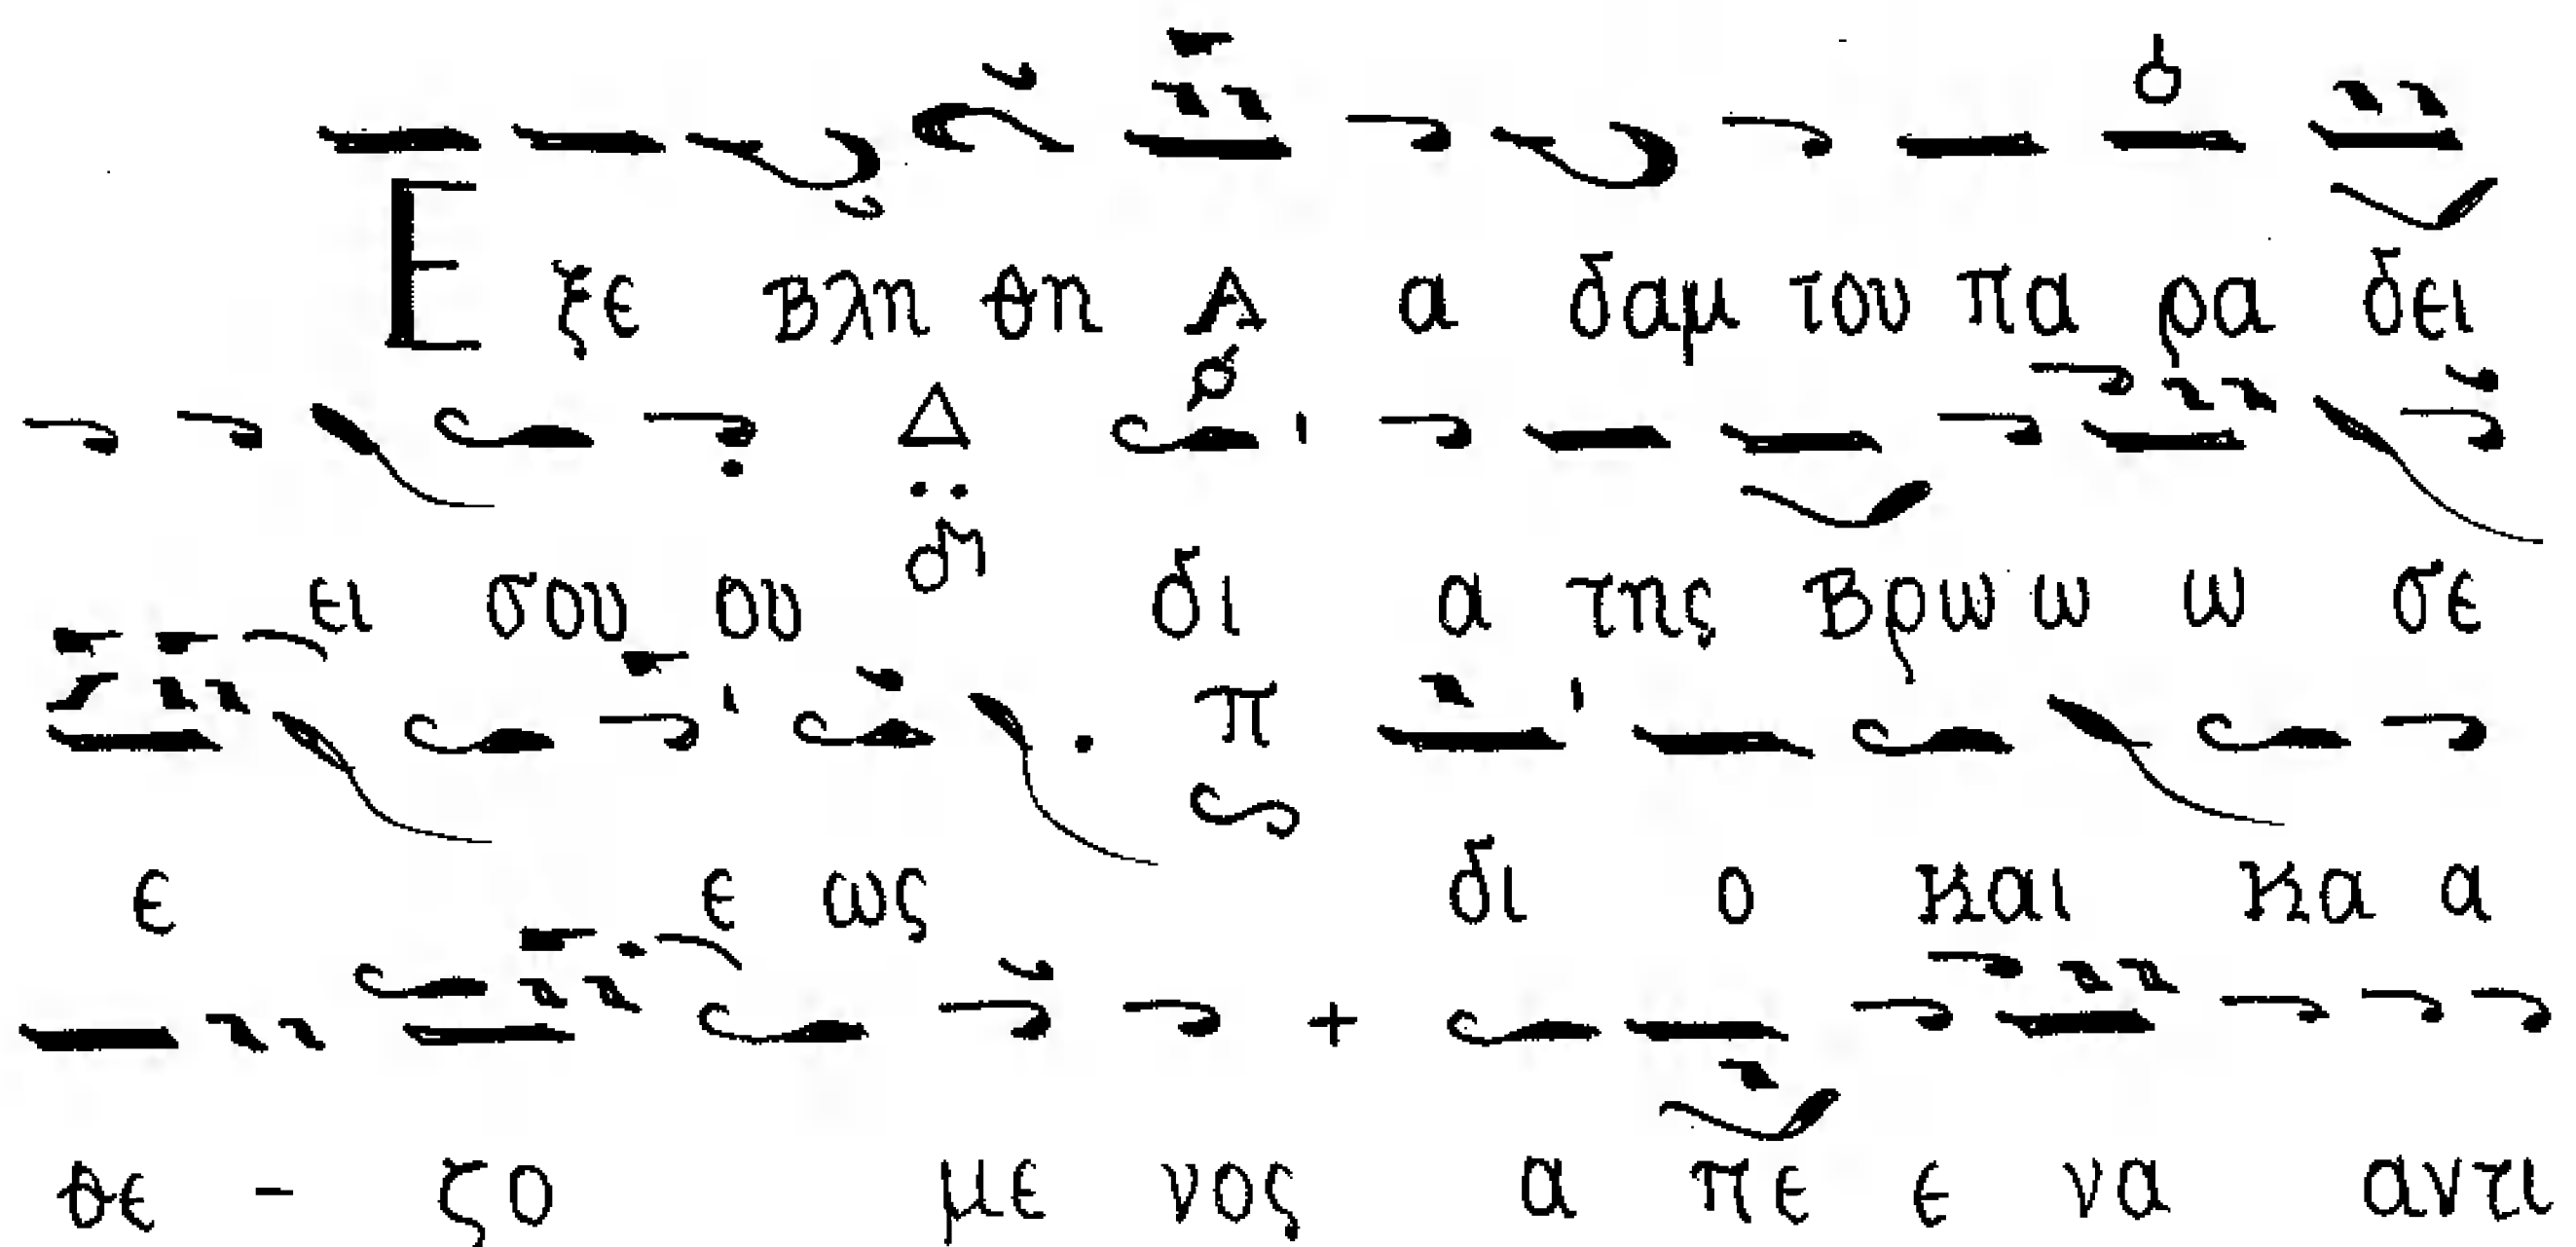 Ε ξε βλη θη Α α δαμ του πα ρα δει
ει σου ου δι α της βρω ω ω σε
ε ε ως δι ο και κα α
θε - ζο με νος α πε ε να αντι